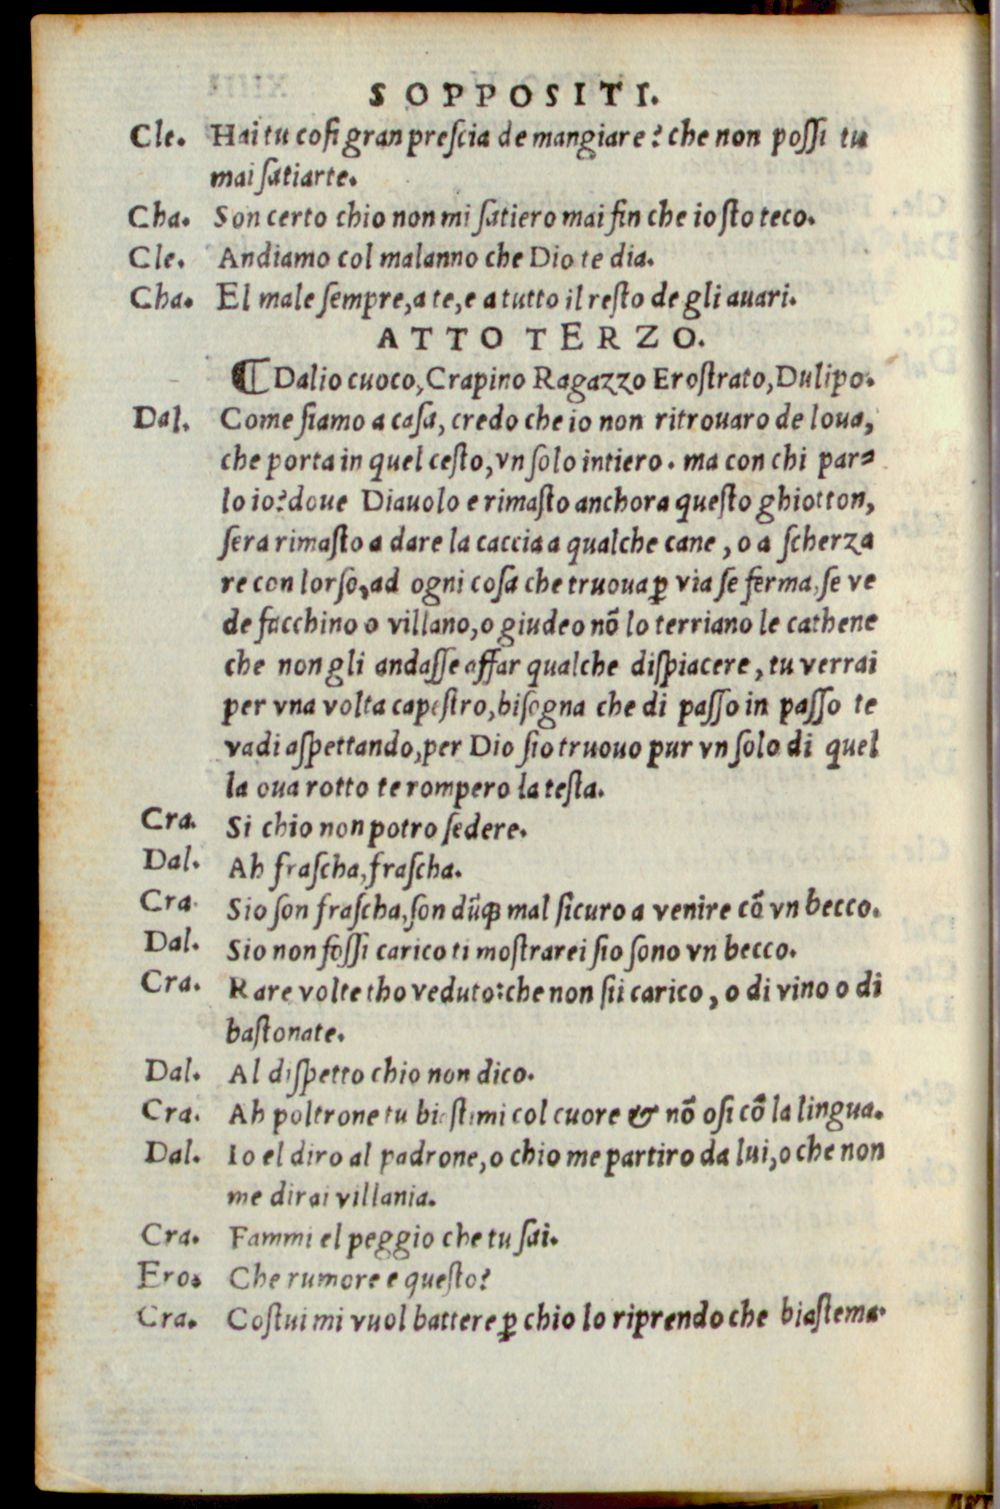 SOPPOSITI.
Cle. Hai tu coſi gran preſcia de mangiare? che non poſſi tu
mai ſatiarte.
Cha. Son certo chio non mi ſatiero mai fin che io ſto teco.
Cle. Andiamo col malanno che Dio te dia.
Cha. El male ſempre, a te, e a tutto il reſto de gli auari.
ATTO TERZO.
⁋ Dalio cuoco, Crapino Ragazzo Eroſtrato, Dulipo.
Dal. Come ſiamo a caſa, credo che io non ritrouaro de loua,
che porta in quel ceſto, vn ſolo intiero. ma con chi par⸗
lo io? doue Diauolo e rimaſto anchora queſto ghiotton,
ſera rimaſto a dare la caccia a qualche cane, o a ſcherza
re con lorſo, ad ogni coſa che truoua ꝑ via ſe ferma, ſe ve
de facchino o villano, o giudeo nõ lo terriano le cathene
che non gli andaſſe affar qualche diſpiacere, tu verrai
per vna volta capeſtro, biſogna che di paſſo in paſſo te
vadi aſpettando, per Dio ſio truouo pur vn ſolo di quel
la oua rotto te rompero la teſta.
Cra. Si chio non potro ſedere.
Dal. Ah fraſcha, fraſcha.
Cra. Sio ſon fraſcha, ſon dũꝙ mal ſicuro a venire cõ vn becco.
Dal. Sio non foſſi carico ti moſtrarei ſio ſono vn becco.
Cra. Rare volte tho veduto: che non ſii carico, o di vino o di
baſtonate.
Dal. Al diſpetto chio non dico.
Cra. Ah poltrone tu bieſtemi col cuore & nõ oſi cõ la lingua.
Dal. Io el diro al padrone, o chio me partiro da lui, o che non
me dirai villania.
Cra. Fammi el peggio che tu ſai.
Ero. Che rumore e queſto?
Cra. Coſtui mi vuol battere ꝑ chio lo riprendo che biaſtema.